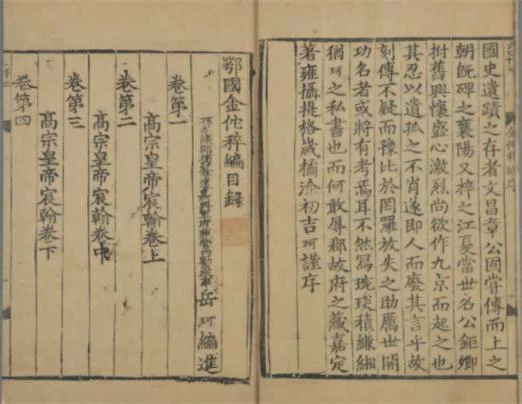 國史遺蹟之存者文昌章公國嘗傳而上之
朝旣碑之襄陽又梓之江夏當世名公鉅卿
拊舊興懷心激烈尚欲作九京而起之也
其忍以遺孤之不肖遂即人而廢其言乎故
刻傳不疑而豫比於罔羅放失之助厲世開
功名者或將有考焉耳不然寫琬琰積縑緗
猶珂之私書也而何敢辱郡故府之藏嘉定
著雍攝提格歲橘涂初吉珂謹序
鄂國金佗稡編目錄
岳珂編進
卷第一
高宗皇帝宸翰卷上
卷第二
高宗皇帝宸翰卷中
卷第三
高宗皇帝宸翰卷下
卷第四